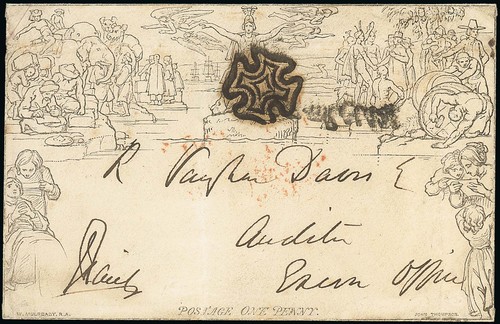 R Vaughan Davis E
Auditr
Paid
Excise Office
POSTAGE ONE PENNY.
W. MULREADY, R.A.
JOHN THOMPSON